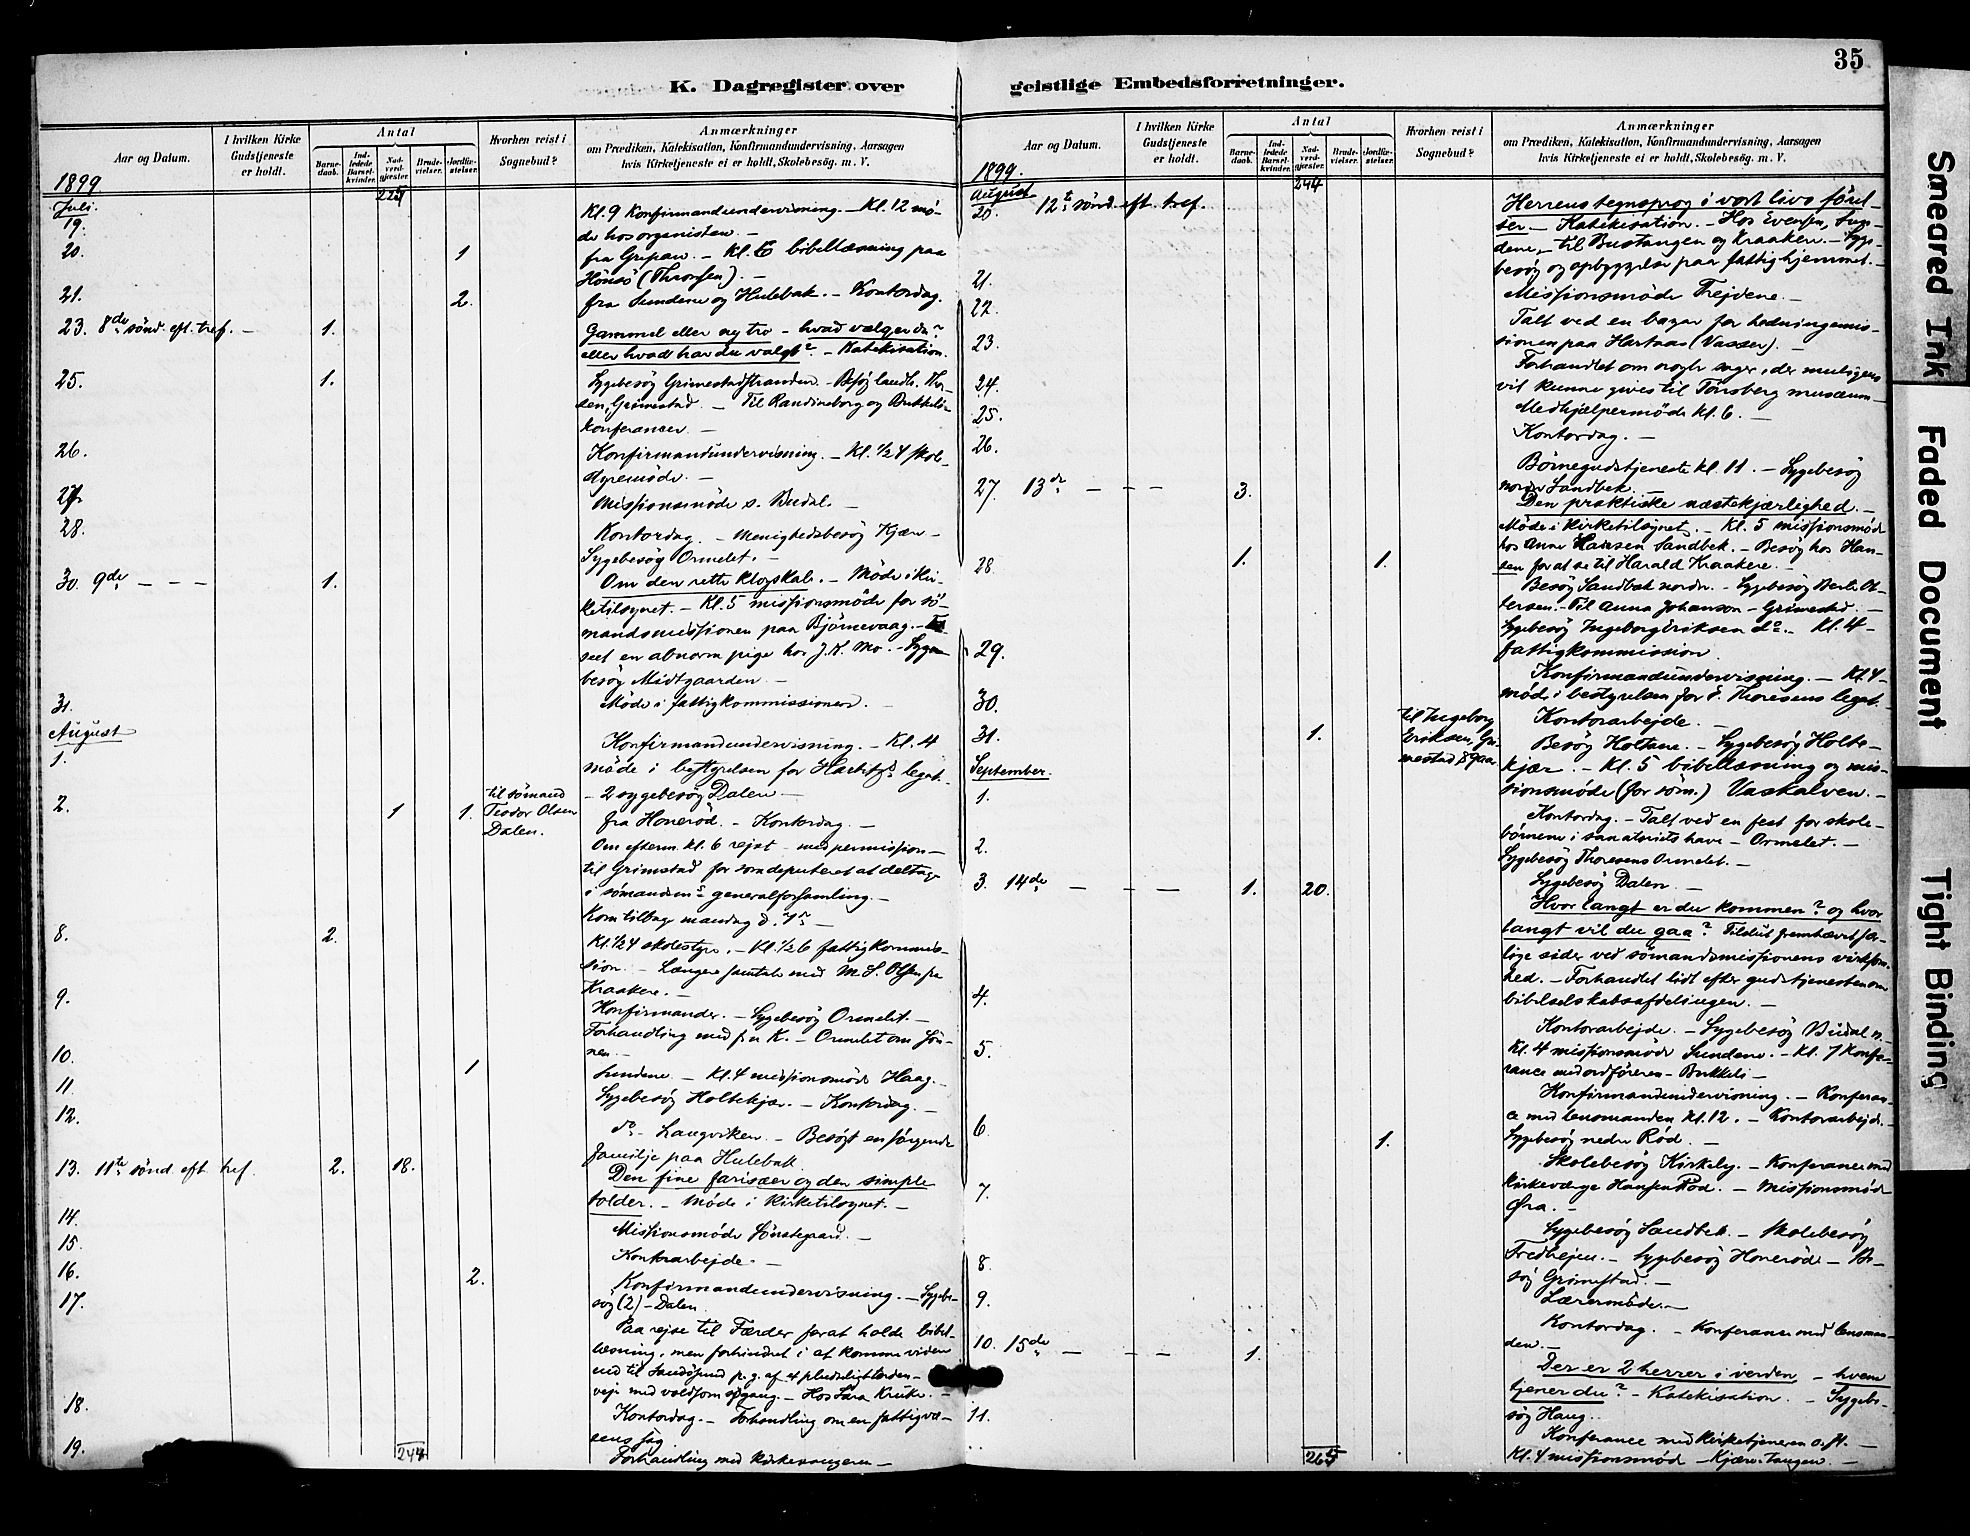 K. Dagregister over
Aar og Datum.
I hvilken Kirke
Gudstjeneste
er holdt.
Antal
Barne-
daab.
Ind-
ledede
Barsel-
kvinder.
Nad-
verd-
gjæster.
Brude-
vielser.
Jordfæ-
stelser.
Hvorhen reist i
Sognebud?
Anmærkninger
om Prædiken, Katekisation, Konfirmandundervisning, Aarsagen
hvis Kirketjeneste ei er holdt, Skolebesög. m. V.
1899
Juli.
19. Kl. 9 Konfirmandundervisning. – Kl. 12 mö-
de hos organisten. –
20. 1 fra Gripan. – Kl. 6 bibellæsning paa
Hönsö (Thronsen). –
21. 2. fra Sundene og Hulebak. – Kontordag.
23. 8de sönd. eft. tref. – 1. Gammel eller ny tro – hvad vælger du?
eller hvad har du valgt? – Katekisation.
25. 1. Sygebesög Grimestadstranden. – Besög landh.
sen, Grimestad. – Til Randineborg og Bukkeli–
konferancer –
26. Konfirmandundervisning. – Kl. 1/2 4 skole-
styremöde. –
27. Missionsmöde s. Budal. –
28. Kontordag. – Menighedsbesög Kjær –
Sygebesög Ormelet. –
30. 9de – – – 1. Om den rette klogskab. – Möde i kir-
ketilsynet. – Kl. 5 missionsmöde for sö-
mandsmissionen paa Björnevaag. –
seet en abnorm pige hos J. K. Mo. – Syge-
besög Midtgaarden –
31. Möde i fattigkommissionen. –
August
1. Konfirmandundervisning. – Kl. 4
möde i bestyrelsen for Harbitz's legat.
2. 1 1. til sömand
Teodor Olsen
Dalen.
– 2 sygebesög Dalen –
fra Honeröd. – Kontordag. –
Om efterm. kl. 6 rejst – med permission –
til Grimstad for som deputeret at deltage
i sömandsm.s generalforsamling. –
Kom tilbage mandag d. 7de –
8. 2. Kl. 1/2 4 skolestyre. – Kl. 1/2 6 fattigkommis-
sion. – Længere samtale med M. S. Olsen fra
Kraakere. –
9. Konfirmander. – Sygebesög Ormelet. –
Forhandling med fru K. – Ormelet om Sön-
nen. –
10. 1 Sundene. – Kl. 4 missionsmöde Haag. –
11. Sygebesög Holtekjær. – Kontordag. –
12. do – Langviken. – Besögt en sörgende
familje paa Hulebak.
13. 11te sönd. eft. tref. 2. 18. Den fine farisæer og den simple
tolder. – Möde i kirketilsynet. –
14. Missionsmöde Sönstegaard. –
15. Kontorarbejde. –
16. 2. Konfirmandundervisning. – Sygebe-
sög (2) – Dalen.
17. Paa rejse til Færder for at holde bibel-
læsning, men forhindret i at komme videre
end til Sandösund p. g. af et pludseligt torden-
vejr med voldsom sögang. – Hos Sara Kruke. –
18. Kontordag. – Forhandling om en fattigvæ-
sens sag
19. 244 Forhandling med kirkesangeren –
geistlige Embedsforretninger.
35
Aar og Datum.
I hvilken Kirke
Gudstjeneste
er holdt.
Antal
Barne-
daab.
Ind-
ledede
Barsel-
kvinder.
Nad-
verd-
gjæster.
Brude-
vielser.
Jordfæ-
stelser.
Hvorhen reist i
Sognebud?
Anmærkninger
om Prædiken, Katekisation, Konfirmandundervisning, Aarsagen
hvis Kirketjeneste ei er holdt, Skolebesög. m. V.
1899.
244
August
20. 12te sönd. eft. tref. Herrens tegnsprog i vort livs förel-
ser. – Katekisation. – Hos Evensen, Sun-
dene, – til Bustangen og Kraakere. – Syge-
besög og opbyggelse paa fattighjemmet. –
21. Missionsmöde Trejdene. –
22. Talt ved en bazar for hedningemis-
sionen paa Hartnas (Vasser). –
23. Forhandlet om nogle sager, der muligens
vil kunne gives til Tönsberg musæum –
24. Medhjælpermöde kl. 6. –
25. Kontordag. –
26. Börnegudstjeneste kl. 11. – Sygebesög
nordre Sandbek. –
27. 13de – – – 3. Den praktiske næstekjærlighed. –
Möde i kirketilsynet. – Kl. 5 missionsmöde
hos Anne Hansen Sandbek. – Besög hos Han-
sen for at se til Harald Kraakere. –
28. 1. 1. Besög Sandbek nordre. – Sygebesög Berte Ol-
tersen. – Til Anna Johanson – Grimestad. –
Sygebesög Ingeborg Eriksen do. – Kl. 4 –
fattigkommission
29. Konfirmandundervisning. – Kl. 4 –
möde i bestyrelsen for E. Thoresens legat.
30. Kontorarbejde. –
31. 1. til Ingeborg
Eriksen, Gri-
mestad
Besög Holtane. – Sygebesög Holte-
kjær. – Kl. 5 bibellæsning og mis-
sionsmöde (for söm.) Vaskalven. –
September.
1. Kontordag. – Talt ved en fest for skole-
börnene i sanatoriets have – Ormelet. –
Sygebesög Thoresens Ormelet. –
2. Sygebesög Dalen. –
3. 14de – – – 1. 20. Hvor langt er du kommen? og hvor
langt vil du gaa? Tilslut fremhævet sæ-
lige sider ved sömandsmissionens virksom-
hed. – Forhandlet lidt efter gudstjenesten om
bibelselskabsafdelingen. –
4. Kontorarbejde. – Sygebesög Budal n. –
Kl. 4 missionsmöde Sundene. – Kl. 7 konfe-
rance med ordföreren – Bukkeli –
5. Konfirmandundervisning. – Konferan-
ce med lensmanden kl. 12. – Kontorarbejde. –
Sygebesög nedre Röd. –
6. 1. Skolebesög Kirkely. – Konferance med
kirkeværge Hansen Röd. – Missionsmöde
Öra. –
7. Sygebesög Sandbek. – Skolebesög
Fredhejen. – Sygebesög Honeröd. – Be-
sög Grimestad. –
8. Lærermöde. –
9. Kontordag. – Konferance med lensman-
den. –
10. 15de – – – 1. Der er 2 herrer i verden – hvem
tjener du? – Katekisation. – Sygebe-
sög Haug.
11. Konferance med kirketjeneren o. fl. –
265 Kl. 4 missionsmöde – Kjær-Tangen. –
Smeared Ink
Faded Document
Tight Binding